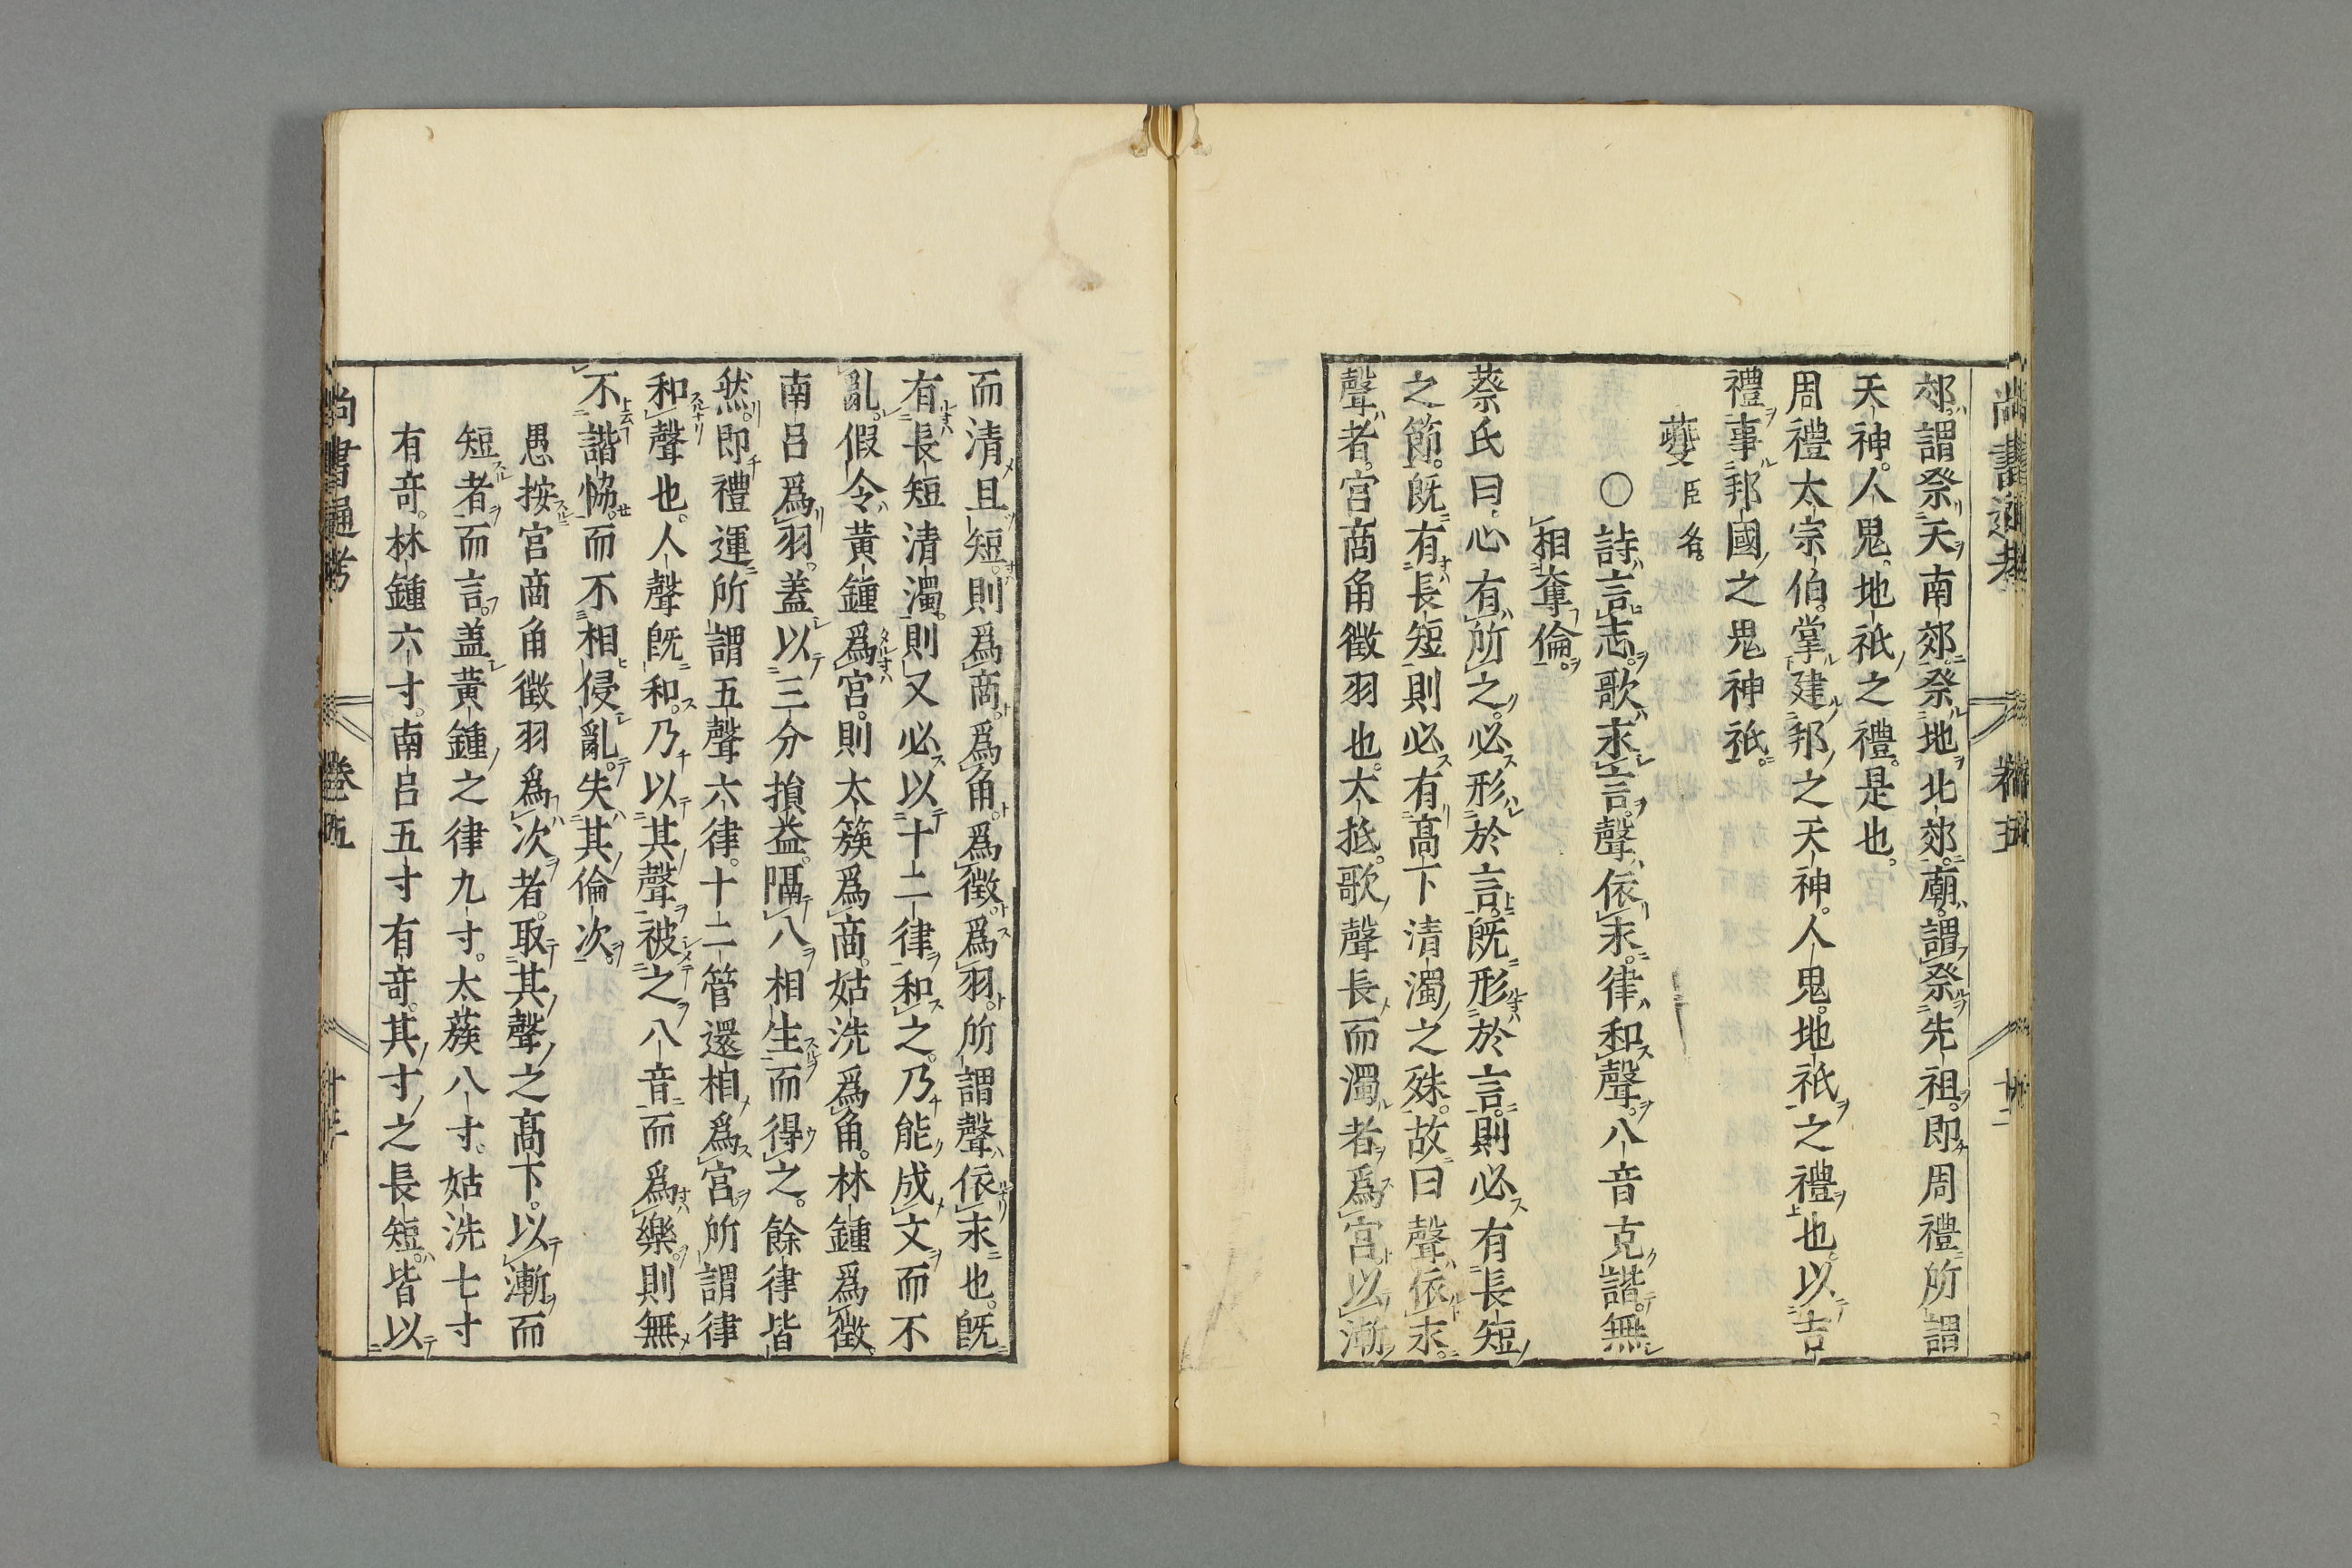 郊謂祭天南郊祭地北郊廟謂祭先祖即周禮所謂
天神人鬼地祇之禮是也
周禮太宗伯掌建邦之天神人鬼地祇之禮也以吉
禮事邦國之鬼神祇
夔臣名
○詩言志歌永言聲依永律和聲八音克諧無
相奪倫
蔡氏曰心有所之必形於言既形於言則必有長短
之節既有長短則必有髙下清濁之殊故曰聲依永
聲者宮商角徵羽也大抵歌聲長而濁者爲宮以漸
而清且短則爲商爲角爲徵爲羽所謂聲依永也既
有長短清濁則又必以十二律和之乃能成文而不
亂假令黃鍾爲宮則太簇爲商姑洗爲角林鍾爲徵
南呂爲羽蓋以三分損益隔八相生而得之餘律皆
然即禮運所謂五聲六律十二管還相爲宮所謂律
和聲也人聲既和乃以其聲被之八音而爲樂則無
不諧恊而不相侵亂失其倫次
愚按宮商角徵羽爲次者取其聲之髙下以漸而
短者而言蓋黃鍾之律九寸太蔟八寸姑洗七寸
有奇林鍾六寸南呂五寸有奇其寸之長短皆以
尚書通考 卷五